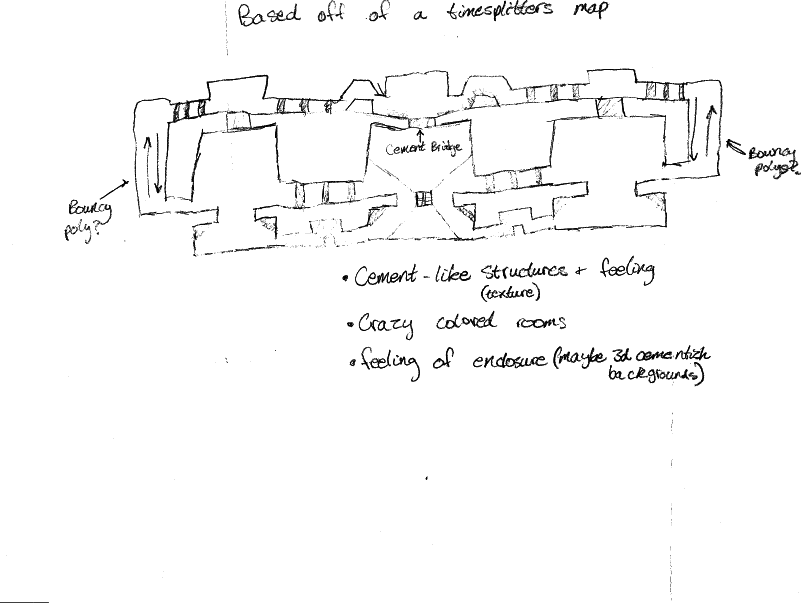 Based off of a timesplitters map
Cement Bridge
Bouncy
poly?
Bouncy
polys?
• Cement-like structures + feeling
(texture)
• Crazy colored rooms
• feeling of enclosure (maybe 3d cementish
backgrounds)